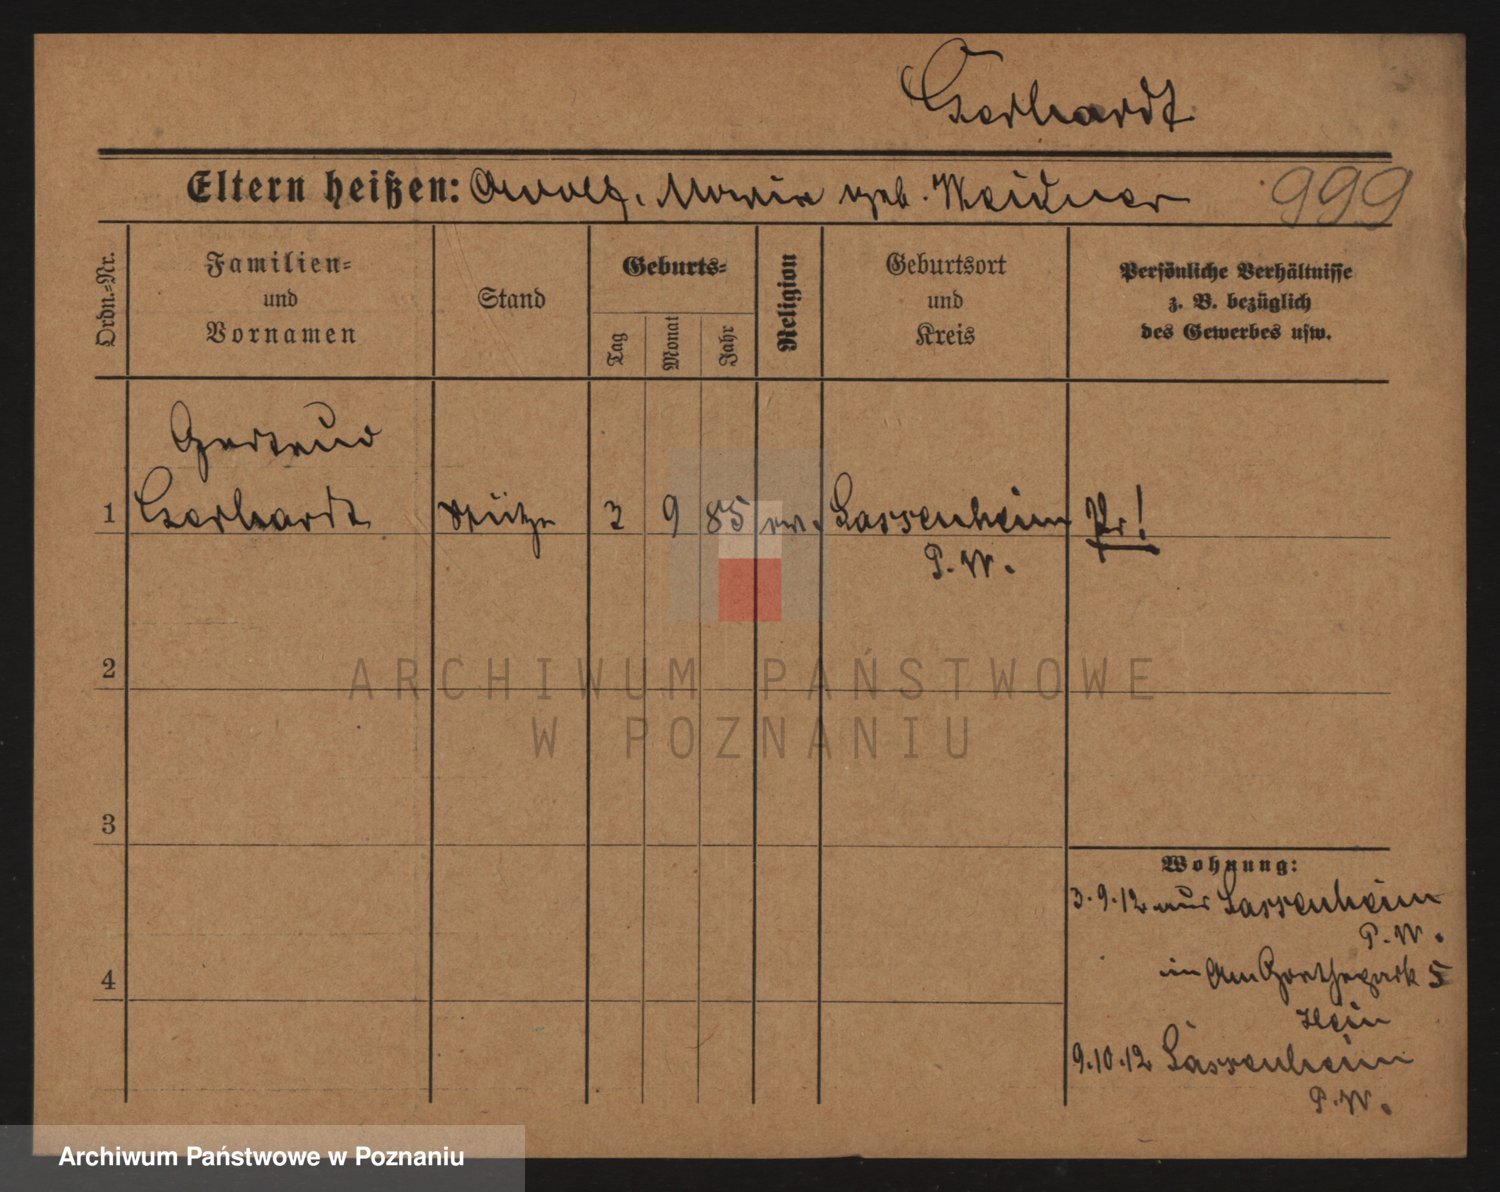 Gerhardt
Eltern heißen: Adolf, Maria geb. Weidner 999
Ordn.=Nr.
Familien=
und
Vornamen
Stand
Geburts=
Tag
Monat
Jahr
Religion
Geburtsort
und
Kreis
Persönliche Verhältnisse
z. B. bezüglich
des Gewerbes usw.
Gertrud
1 Gerhardt Stütze 3 9 85 ev. Sassenheim Pr!
P. W.
2
ARCHIWUM PAŃSTWOWE
W POZNANIU
3
Wohnung:
3.9.12 aus Sassenheim
P. W.
4
in Am Goethepark 5
Hein
9.10.12 Sassenheim
P. W.
Archiwum Państwowe w Poznaniu